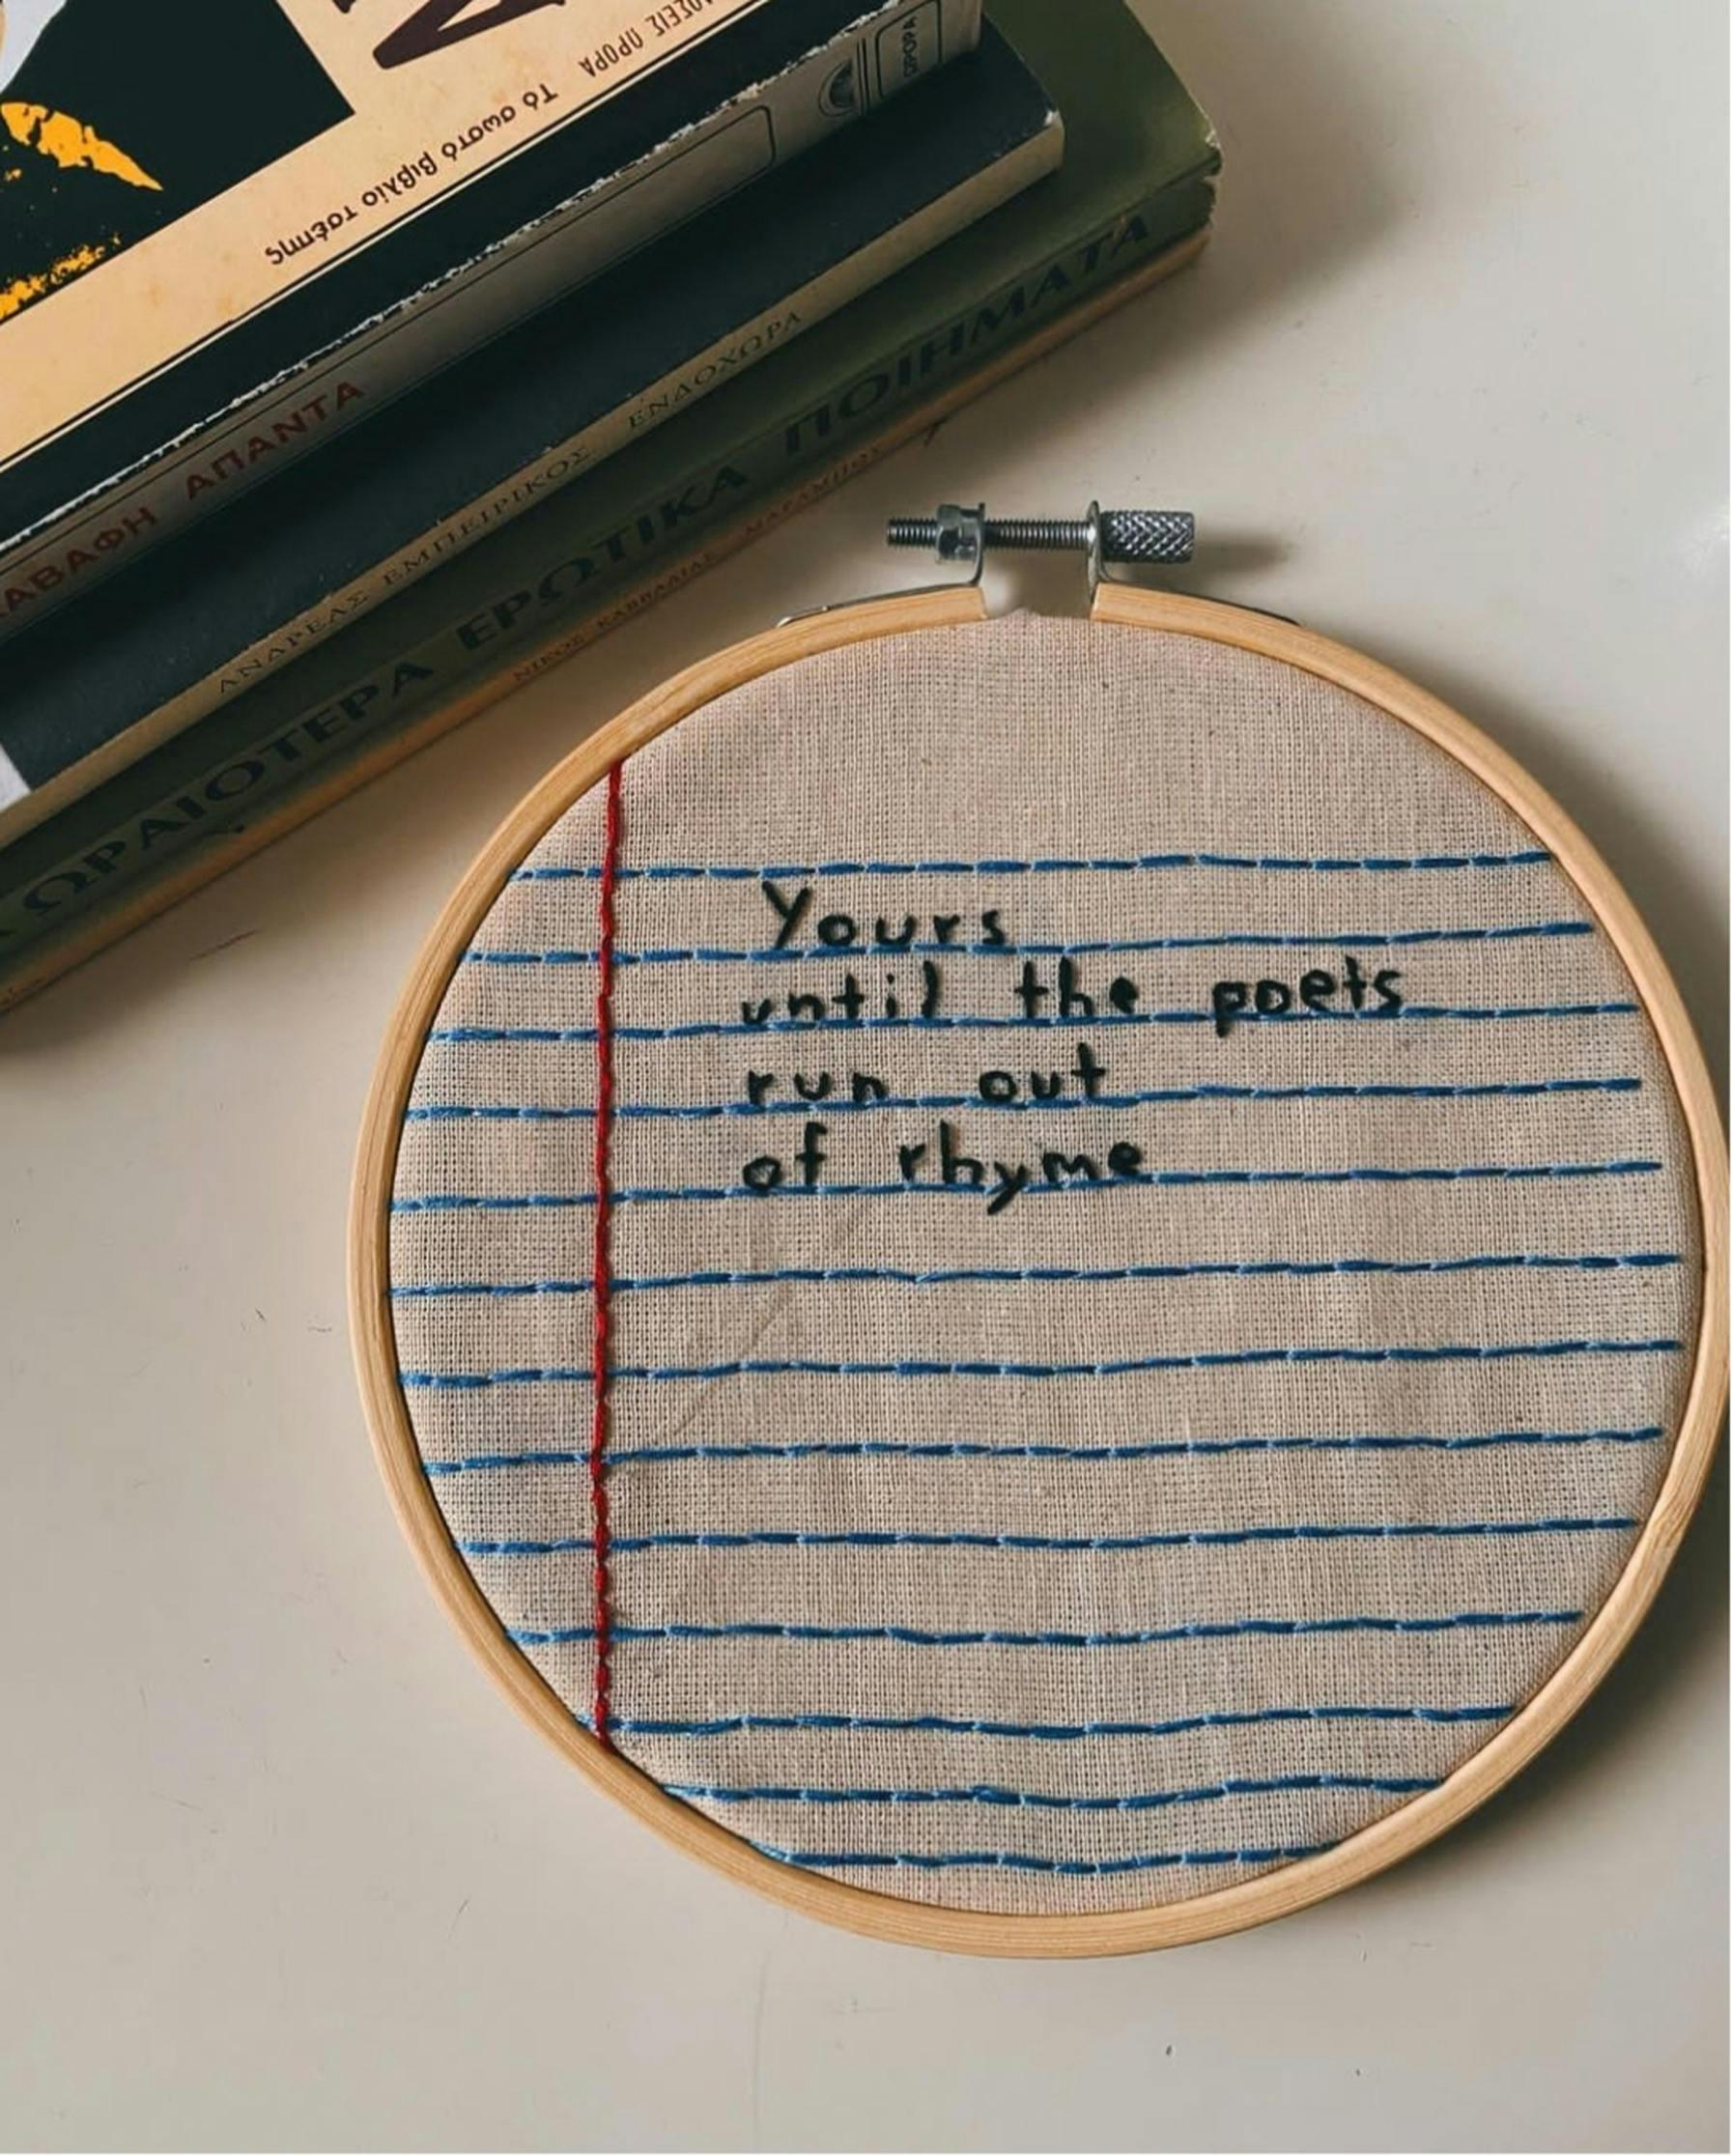 Τό σωστό βιβλίο τσέπης
ΠΡΟΡΑ
ΑΠΑΝΤΑ
ΑΝΔΡΕΑΣ ΕΜΠΕΙΡΙΚΟΣ ΕΝΔΟΧΩΡΑ
ΩΡΑΙΟΤΕΡΑ ΕΡΩΤΙΚΑ ΠΟΙΗΜΑΤΑ
ΝΙΚΟΣ ΚΑΒΒΑΔΙΑΣ ΜΑΡΑΜΠΟΥ
Yours
until the poets
run out
of rhyme